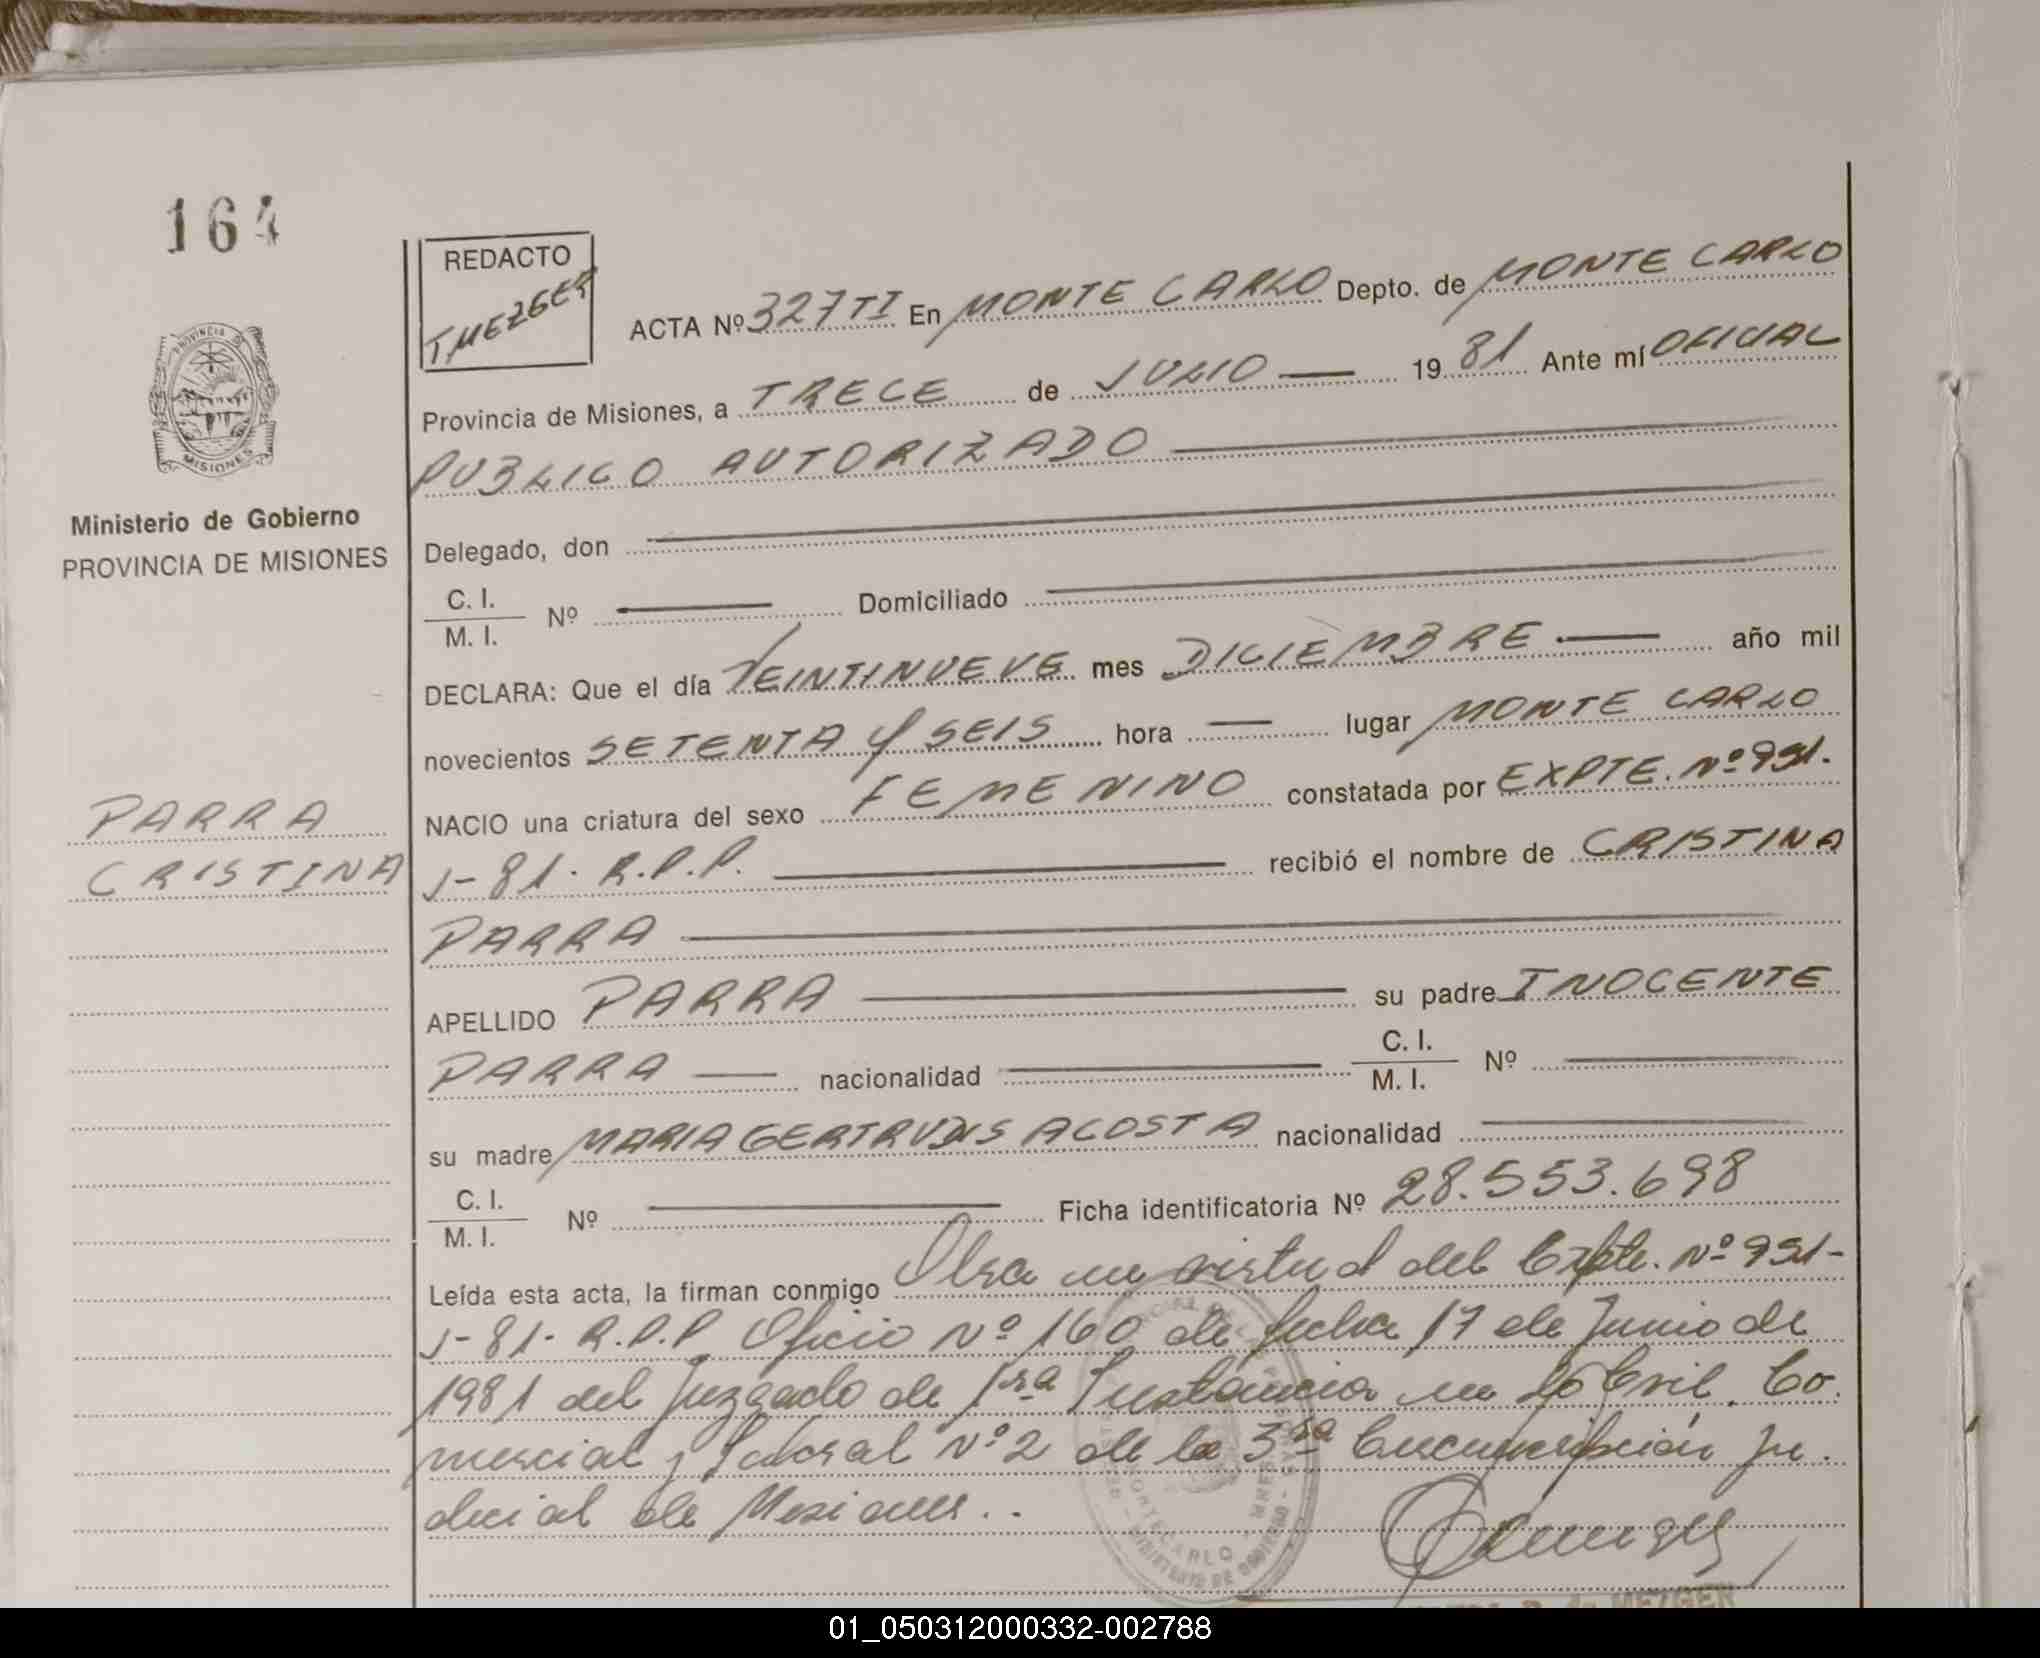 164
REDACTO
T. MEZGER
ACTA Nº 327 TI En MONTE CARLO Depto. de MONTE CARLO
Provincia de Misiones, a TRECE de JULIO 19 81 Ante mí OFICIAL
PUBLICO AUTORIZADO
PROVINCIA DE
MISIONES
Ministerio de Gobierno
PROVINCIA DE MISIONES
Delegado, don
C. I.
M. I. Nº Domiciliado
DECLARA: Que el día VEINTINUEVE mes DICIEMBRE año mil
novecientos SETENTA Y SEIS hora lugar MONTE CARLO
PARRA
CRISTINA
NACIO una criatura del sexo FEMENINO constatada por EXPTE. Nº 991.
J-81. R.P.P. recibió el nombre de CRISTINA
PARRA
APELLIDO PARRA su padre INOCENTE
PARRA nacionalidad C. I.
M. I. Nº
su madre MARIA GERTRUDIS ACOSTA nacionalidad
C. I.
M. I. Nº Ficha identificatoria Nº 28.553.698
Leída esta acta, la firman conmigo Obra en virtud del Expte. Nº 991-
J-81- R.P.P. Oficio Nº 160 de fecha 17 de Junio de
1981 del Juzgado de 1ra Instancia en lo Civil, Co.
mercial y Laboral Nº 2 de la 3ra Circunscripción Ju.
dicial de Misiones..
MONTECARLO
MINISTERIO DE GOBIERNO
MEZGER
01_050312000332-002788